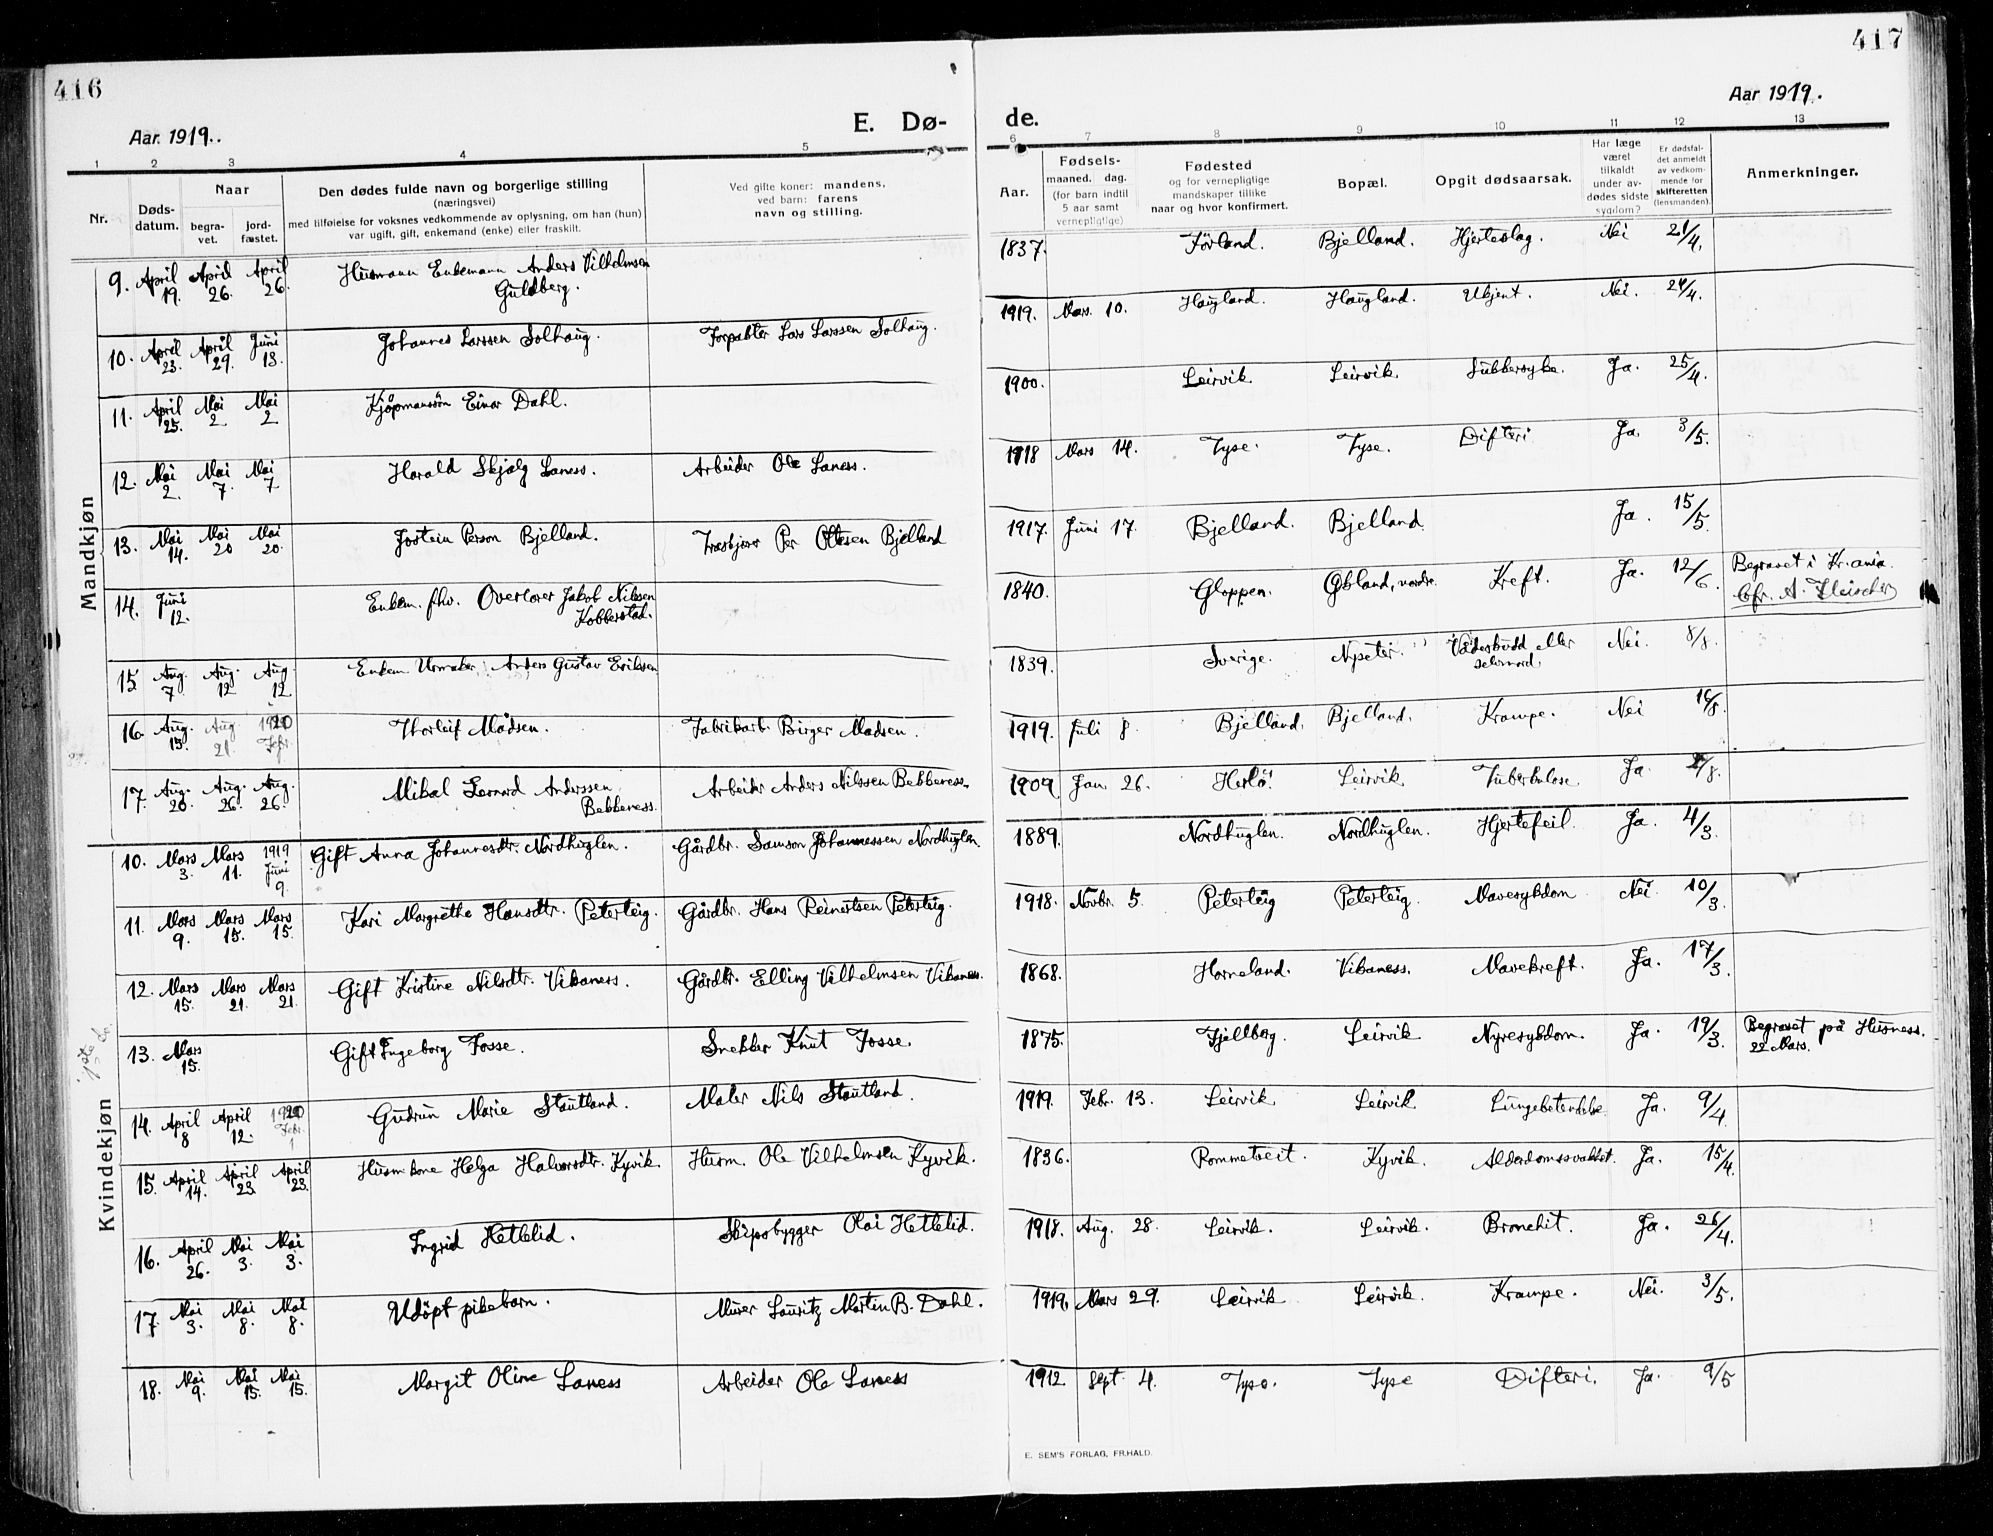 416
417
Aar. 1919.
E. Dø-
de.
Aar 1919.
1 2 3 4 5 6 7 8 9 10 11 12 13
Nr.
Døds-
datum.
Naar
begra-
vet.
jord-
fæstet.
Den dødes fulde navn og borgerlige stilling
(næringsvei)
med tilføielse for voksnes vedkommende av oplysning, om han (hun)
var ugift, gift, enkemand (enke) eller fraskilt.
Ved gifte koner: mandens,
ved barn: farens
navn og stilling.
Aar.
Fødsels-
maaned. dag.
(for barn indtil
5 aar samt
vernepligtige)
Fødested
og for vernepligtige
mandskaper tillike
naar og hvor konfirmert.
Bopæl.
Opgit dødsaarsak.
Har læge
været
tilkaldt
under av-
dødes sidste
sygdom?
Er dødsfal-
det anmeldt
av vedkom-
mende for
skifteretten
(lensmanden).
Anmerkninger.
Mandkjøn
9. April 19. April 26. April 26. Husmann Enkemann Anders Vilhelmsen Guldberg. 1837. Förland. Bjelland. Hjerteslag. Nei 21/4.
10. April 23. April 29. Juni 13. Johannes Larssen Solhaug. Forpakter Lars Larssen Solhaug. 1919. Mars. 10. Haugland. Haugland. Ukjent. Nei. 24/4.
11. April 25. Mai 2 Mai 2 Kjøpmansøn Einar Dahl. 1900. Leirvik Leirvik. Sukkersyke. Ja. 25/4.
12. Mai 2. Mai 7. Mai 7 Harald Skjalg Laness. Arbeider Ole Laness. 1918 Mars 14. Tyse. Tyse. Difteri Ja. 3/5.
13. Mai 14. Mai 20 Mai 20. Jostein Person Bjelland. Træskjærer Per Ottesen Bjelland 1917. Juni 17. Bjelland. Bjelland. Ja. 15/5.
14. Juni 12. Enkem. fhv. Overlærer Jakob Nilssen Kobberstad. 1840. Gloppen. nordre. Kreft. Ja. 12/6. Begravet i Kr.ania. Cfr. A. Fleischer
15 Aug. 7. Aug. 12 Aug. 12 Enkem. Urmaker Anders Gustav Erikssen 1839. Sverige. Nysæter. Vådesskudd eller selvmord. Nei. 8/8.
16. Aug. 15. Aug. 21. 1920 Febr. Thorleif Madsen. Fabrikarb. Birger Madsen. 1919. Juli 8 Bjelland. Bjelland. Krampe. Nei 16/8.
17. Aug. 20. Aug. 26. Aug. 26. Mikal Lernord Anderssen Bekkeness. Arbeider Anders Nilssen Bekkeness. 1909 Jan. 26. Herlø. Leirvik Tuberkulose Ja.
Kvindekjøn
10. Mars 3. Mars 11. 1919 Juni 9. Gift Anna Johannesdtr. Nordhuglen. Gårdbr. Samson Johannessen Nordhuglen. 1889. Nordhuglen. Nordhuglen. Hjertefeil. Ja. 4/3.
11. Mars 9. Mars 15. Mars 15. Kari Margrethe Hansdtr. Peterteig. Gårdbr. Hans Reinertsen Peterteig. 1918. Novbr. 5. Peterteig Peterteig. Mavesykdom Nei. 10/3.
12. Mars 15. Mars 21. Mars 21. Gift Kristine Nilsdtr. Vikaness. Gårdbr. Elling Vilhelmsen Vikaness. 1868. Horneland. Vikaness. Mavekreft. Ja. 17/3.
13. Mars 15. Gift Ingeborg Fosse. Snekker Knut Fosse. 1875. Fjellberg. Leirvik Nyresykdom. Ja. 19/3. Begravet på Husness. 22 Mars.
14. April 8 April 12. 1920 Febr. 1 Gudrun Marie Stautland. Maler Nils Stautland. 1919. Febr. 13. Leirvik Leirvik Lungebetendelse. Ja. 9/4.
15. April 14. April 23. April 23. Husm.kone Helga Halvorsdtr. Kyvik. Husm. Ole Vilhelmsen Kyvik. 1836. Rommetveit. Kyvik. Alderdomssvakhet. Ja. 15/4.
16. April 26. Mai 3. Mai 3. Ingrid Hetlelid. Skipsbygger Olai Hetlelid. 1918. Aug. 28. Leirvik. Leirvik. Bronchit. Ja. 26/4.
17. Mai 3. Mai 8. Mai 8. Udöpt pikebarn. Murer Lauritz Martin B. Dahl. 1919. Mars 29. Leirvik Leirvik. Krampe. Nei. 3/5.
18. Mai 9. Mai 15. Mai 15. Margit Oline Laness Arbeider Ole Laness 1912 Sept 4. Tyse. Tyse Difteri. Ja. 9/5
E. SEM'S FORLAG, FR.HALD.